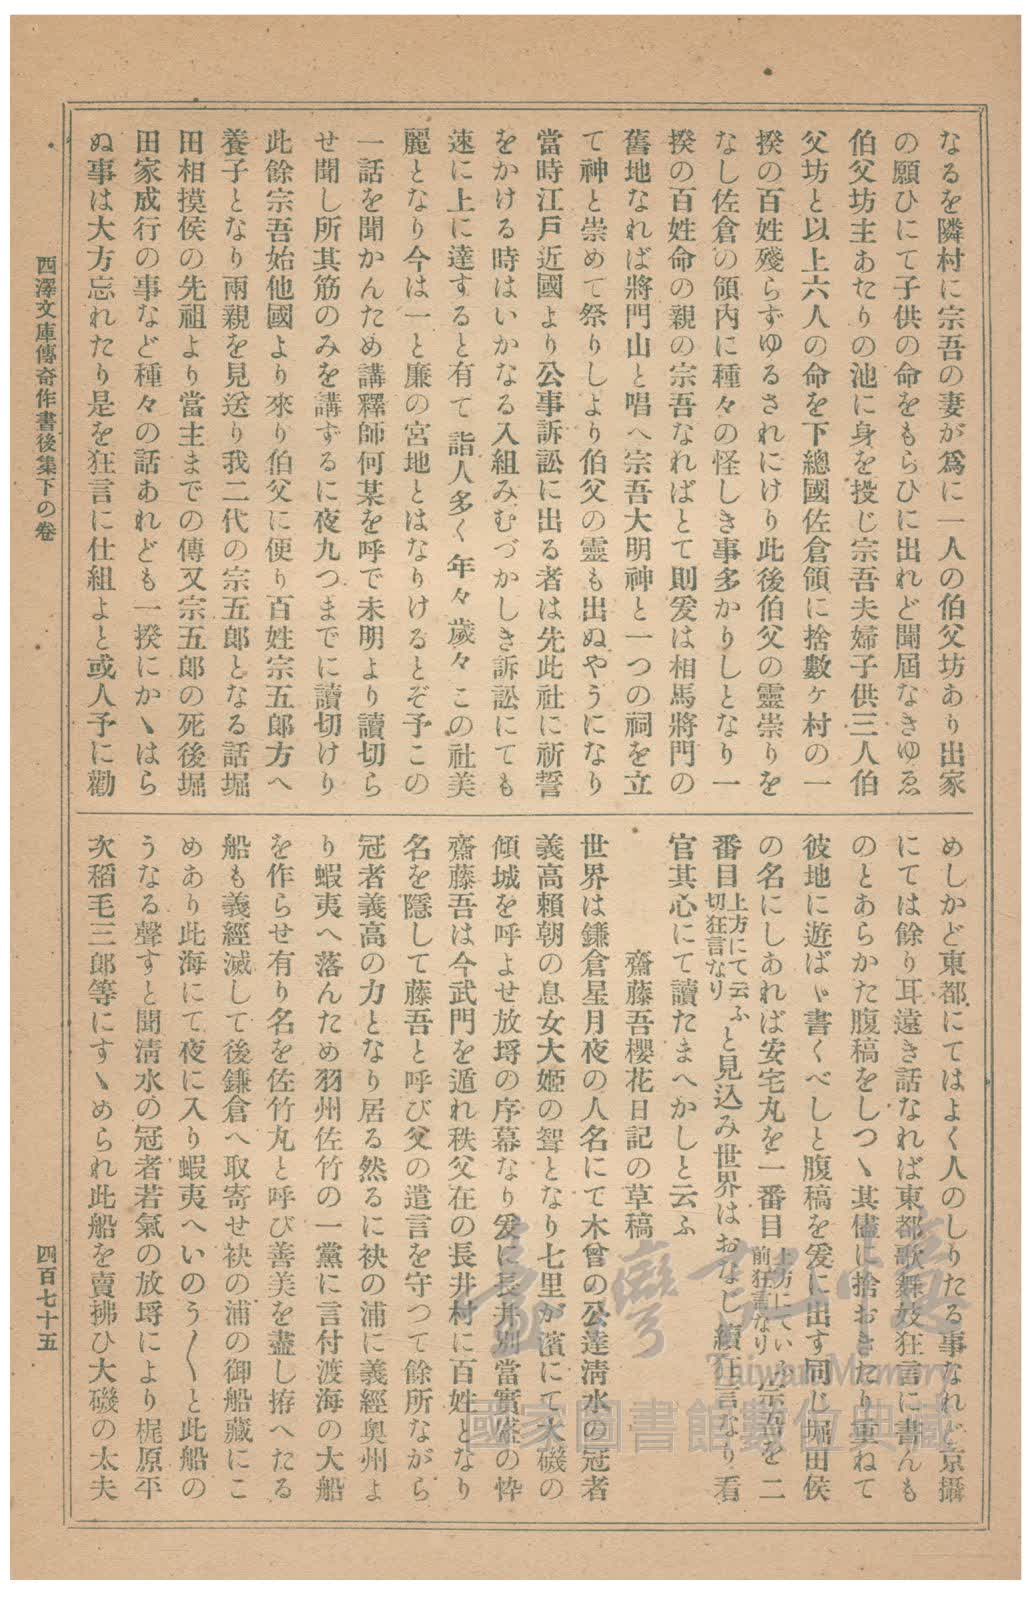 なるを隣村に宗吾の妻が爲に一人の伯父坊あり出家
の願ひにて子供の命をもらひに出れど聞屆なきゆゑ
伯父坊主あたりの池に身を投じ宗吾夫婦子供三人伯
父坊と以上六人の命を下總國佐倉領に捨數ヶ村の一
揆の百姓殘らずゆるされにけり此後伯父の靈祟りを
なし佐倉の領内に種々の怪しき事多かりしとなり一
揆の百姓命の親の宗吾なればとて則爰は相馬將門の
舊地なれば將門山と唱へ宗吾大明神と一つの祠を立
て神と崇めて祭りしより伯父の靈も出ぬやうになり
當時江戸近國より公事訴訟に出る者は先此社に祈誓
をかける時はいかなる入組みむづかしき訴訟にても
速に上に達すると有て詣人多く年々歲々この社美
麗となり今は一と廉の宮地とはなりけるとぞ予この
一話を聞かんため講釋師何某を呼で未明より讀切ら
せ聞し所其筋のみを講ずるに夜九つまでに讀切けり
此餘宗吾始他國より來り伯父に便り百姓宗五郎方へ
養子となり兩親を見送り我二代の宗五郎となる話堀
田相摸侯の先祖より當主までの傳又宗五郎の死後堀
田家成行の事など種々の話あれども一揆にかゝはら
ぬ事は大方忘れたり是を狂言に仕組よと或人予に勸
めしかど東都にてはよく人のしりたる事なれど京攝
にては餘り耳遠き話なれば東都歌舞妓狂言に書んも
のとあらかた腹稿をしつゝ其儘に捨おきたり重ねて
彼地に遊ばゞ書くべしと腹稿を爰に出す同じ堀田侯
の名にしあれば安宅丸を一番目上方にていふ前狂言なり宗吾を二
番目上方にて云ふ切狂言なりと見込み世界はおなし續狂言なり看
官其心にて讀たまへかしと云ふ
齋藤吾櫻花日記の草稿
世界は鎌倉星月夜の人名にて木曾の公達淸水の冠者
義高賴朝の息女大姬の聟となり七里が濱にて大磯の
傾城を呼よせ放埓の序幕なり爰に長井別當實盛の忰
齋藤吾は今武門を遁れ秩父在の長井村に百姓となり
名を隱して藤吾と呼び父の遺言を守つて餘所ながら
冠者義高の力となり居る然るに袂の浦に義經奥州よ
り蝦夷へ落んため羽州佐竹の一黨に言付渡海の大船
を作らせ有り名を佐竹丸と呼び善美を盡し拵へたる
船も義經滅して後鎌倉へ取寄せ袂の浦の御船藏にこ
めあり此海にて夜に入り蝦夷へいのう〱と此船の
うなる聲すと聞淸水の冠者若氣の放埓により梶原平
次稻毛三郎等にすゝめられ此船を賣拂ひ大磯の太夫
西澤文庫傳奇作書後集下の卷
四百七十五
臺灣記憶
Taiwan Memory
國家圖書館數位典藏